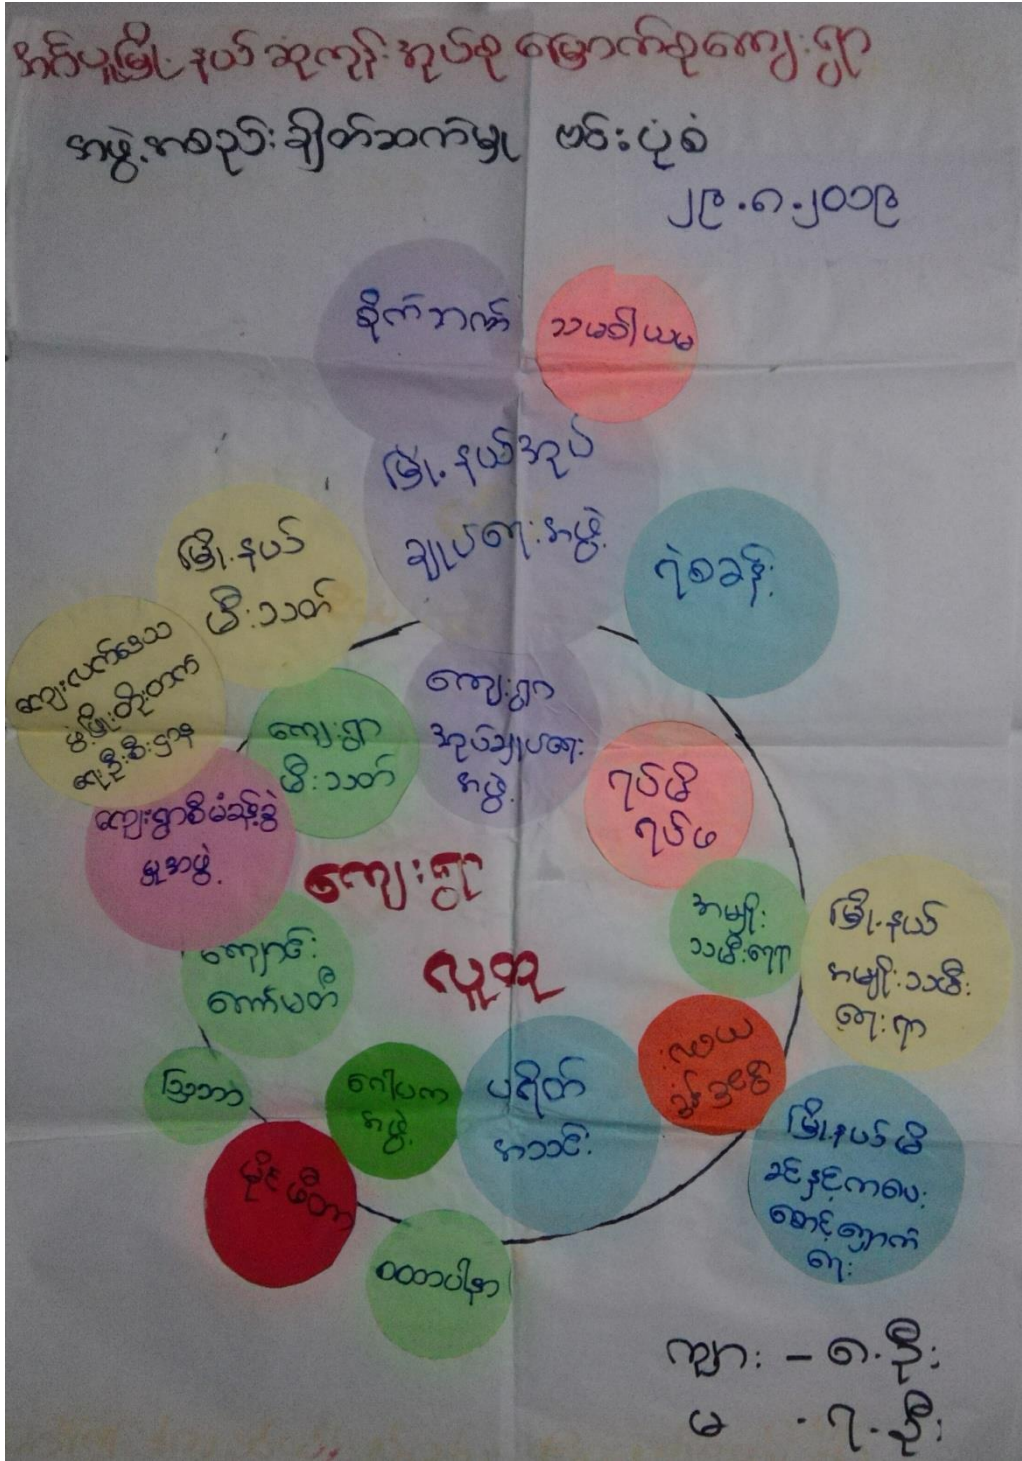 အင်ပူမြို့နယ် ဆူကုန်းအုပ်စု မြှောက်စုကျေးရွာ
အဖွဲ့အစည်းချိတ်ဆက်မှု ဗင်းပုံစံ
၂၉.၈.၂၀၁၉
စိုက်ဘဏ်
သမဝါယမ
မြို့နယ်အုပ်
ချုပ်ရေးအဖွဲ့
မြို့နယ်
မီးသတ်
ရဲစခန်း
ကျေးလက်ဒေသ
ဖွံ့ဖြိုးတိုးတက်
ရေးဦးစီးဌာန
ကျေးရွာ
မီးသတ်
ကျေးရွာ
အုပ်ချုပ်ရေး
အဖွဲ့
ရပ်မိ
ရပ်ဖ
ကျေးရွာစီမံခန့်ခွဲ
မှုအဖွဲ့
ကျေးရွာ
လူထု
အမျိုး
သမီးရေးရာ
မြို့နယ်
အမျိုးသမီး
ရေးရာ
ကျောင်း
ကော်မတီ
ဩဘာ
ဂေါပက
အဖွဲ့
ပရိတ်
အသင်း
မြို့နယ်မိ
ခင်နှင့်ကလေး
စောင့်ရှောက်
ရေး
မိုင်မီတာ
ဝထာပါနာ
ကျား - ၈.ဦး
မ - ၇.ဦး